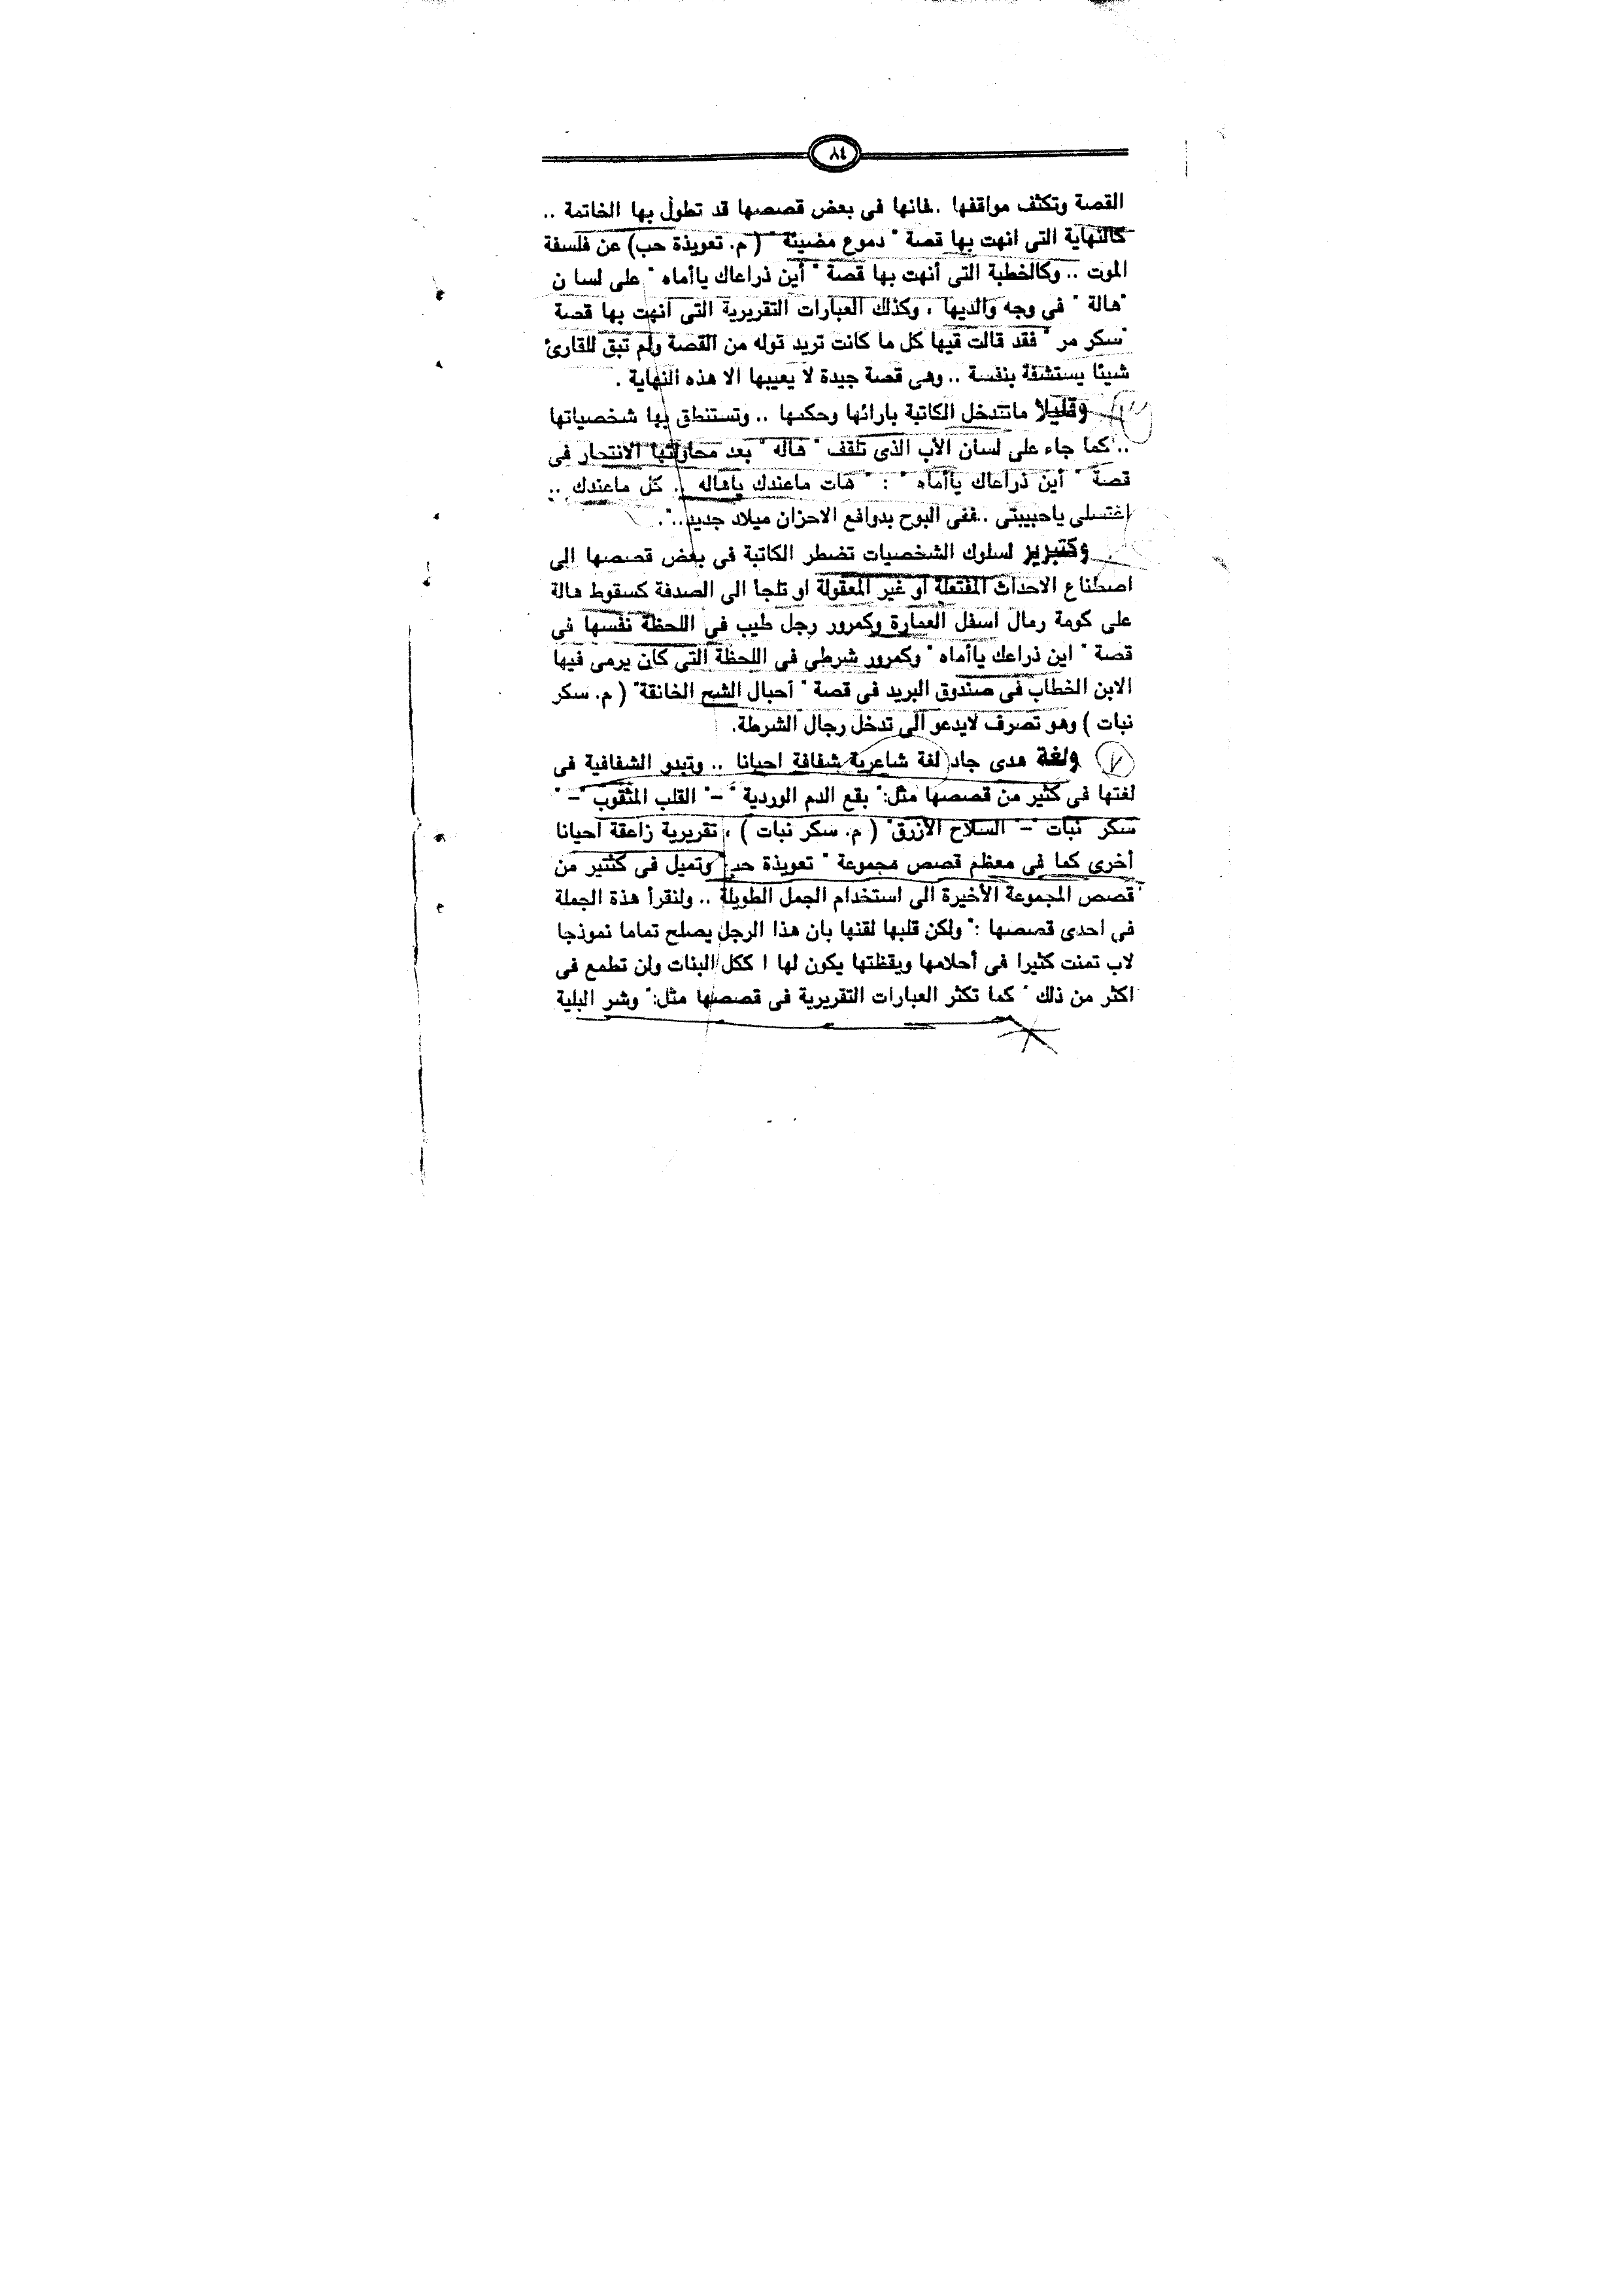 ٨٤
القصة وتكثف مواقفها ..فانها فى بعض قصصها قد تطول بها الخاتمة ..
كالنهاية التى انهت بها قصة " دموع مضيئة " ( م. تعويذة حب) عن فلسفة
الموت .. وكالخطبة التى أنهت بها قصة " أين ذراعاك ياأماه " على لسا ن
"هالة " فى وجه والديها ، وكذلك العبارات التقريرية التى انهت بها قصة
"سكر مر " فقد قالت فيها كل ما كانت تريد قوله من القصة ولم تبق للقارئ
شيئا يستشفة بنفسة .. وهى قصة جيدة لا يعيبها الا هذه النهاية .
وقليلا ماتتدخل الكاتبة بارائها وحكمها .. وتستنطق بها شخصياتها
.. كما جاء على لسان الأب الذى تلقف " هاله " بعد محاولتها الانتحار فى
قصة " أين ذراعاك ياأماه " : " هات ماعندك ياهاله .. كل ماعندك ..
إغتسلى ياحبيبتى ..ففى البوح بدوافع الاحزان ميلاد جديد..".
وكتبرير لسلوك الشخصيات تضطر الكاتبة فى بعض قصصها الى
اصطناع الاحداث المفتعلة أو غير المعقولة او تلجأ الى الصدفة كسقوط هالة
على كومة رمال اسفل العمارة وكمرور رجل طيب فى اللحظة نفسها فى
قصة " اين ذراعك ياأماه " وكمرور شرطى فى اللحظة التى كان يرمى فيها
الابن الخطاب فى صندوق البريد فى قصة " أحبال الشبح الخانقة" ( م. سكر
نبات ) وهو تصرف لايدعو الى تدخل رجال الشرطة.
٧ ولغة هدى جاد لغة شاعرية شفافة احيانا .. وتبدو الشفافية فى
لغتها فى كثير من قصصها مثل:" بقع الدم الوردية " –" القلب المثقوب "– "
سكر نبات "–" السلاح الأزرق" ( م. سكر نبات ) ، تقريرية زاعقة احيانا
أخرى كما فى معظم قصص مجموعة " تعويذة حب" وتميل فى كثتير من
قصص المجموعة الأخيرة الى استخدام الجمل الطويلة .. ولنقرأ هذة الجملة
فى احدى قصصها :" ولكن قلبها لقنها بان هذا الرجل يصلح تماما نموذجا
لاب تمنت كثيرا فى أحلامها ويقظتها يكون لها ا ككل البنات ولن تطمع فى
اكثر من ذلك " كما تكثر العبارات التقريرية فى قصصها مثل:" وشر البلية